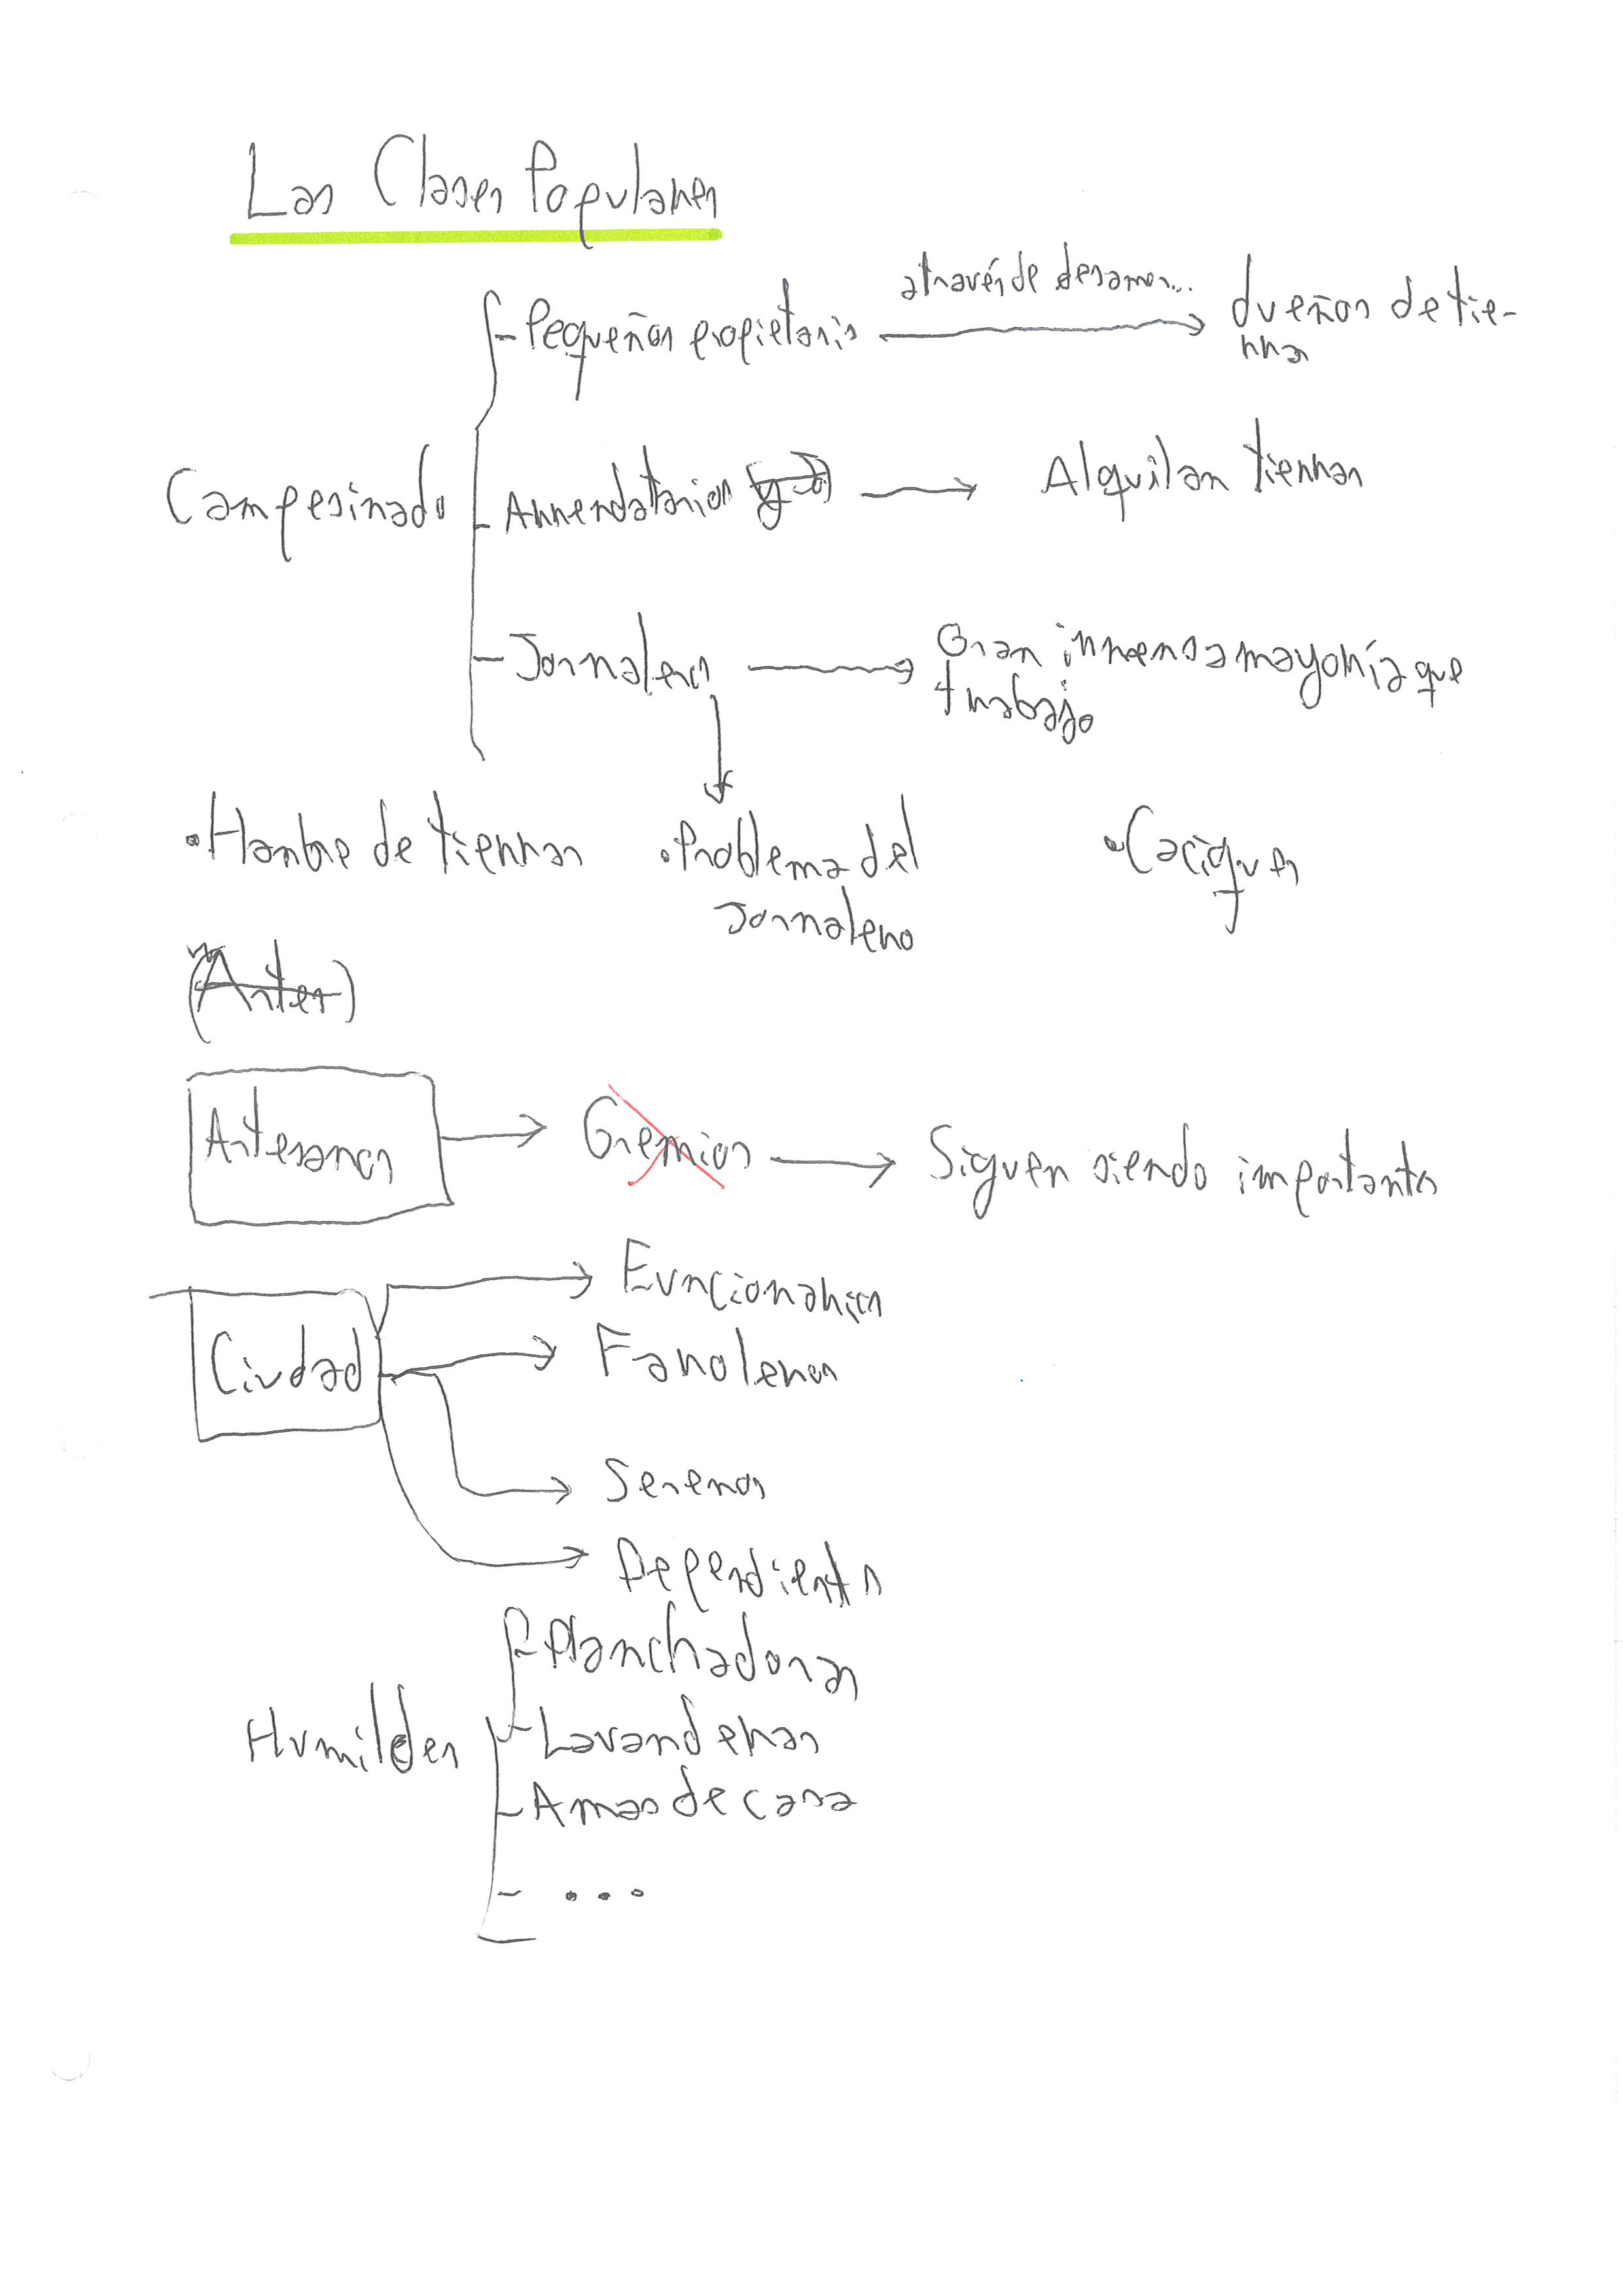 Las Clases Populares
- Pequeños propietaris
através de desamor...
dueños de tie-
rras
Campesinado
- Arrendatarios
Alquilan tierras
- Jornaleros
Gran inmensa mayoría que
trabajo
• Hambre de tierras
• Problema del
Jornalero
• Caciques
(Antes)
Artesanos
Gremios
Siguen siendo importantes
Funcionarios
Ciudad
Faroleros
Serenos
Dependientes
Humildes
- Planchadoras
- Lavanderas
- Amas de casa
- ...